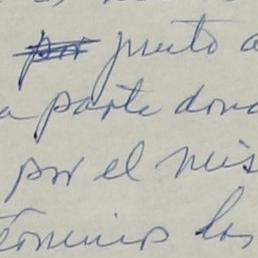 por junto a
a parte dond
por el mis
terminos los